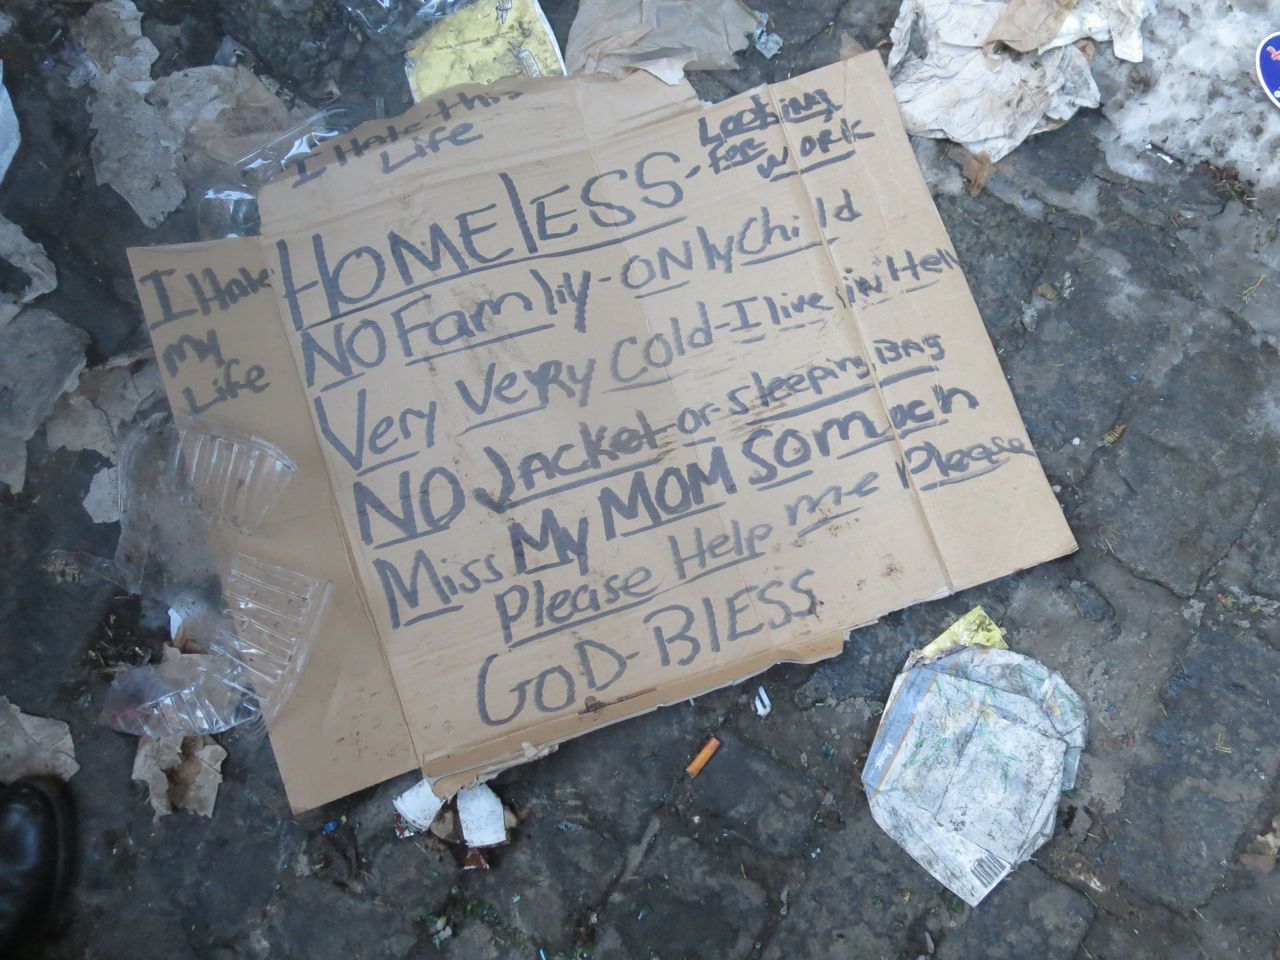 I Hate this
Life
Looking
For
WORK
HOMElESS-
NO Family-ONly Child
Very Very Cold-I live in Hell
NO JACket or sleeping BAg
Miss My MOM SO mach
Please Help me Please
GOD-BlESS
I Hate
My
Life